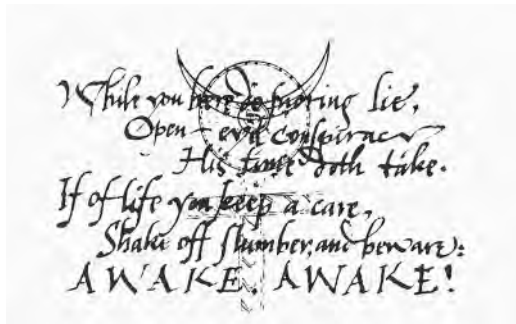 While you here do snoring lie,
Open-eyd conspiracy
His time doth take.
If of life you keep a care,
Shake off slumber, and beware:
AWAKE, AWAKE!